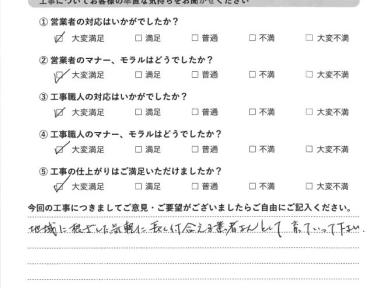 工事についてお客様の率直な気持ちをお聞かせください
① 営業者の対応はいかがでしたか？
☑ 大変満足 □ 満足 □ 普通 □ 不満 □ 大変不満
② 営業者のマナー、モラルはどうでしたか？
☑ 大変満足 □ 満足 □ 普通 □ 不満 □ 大変不満
③ 工事職人の対応はいかがでしたか？
☑ 大変満足 □ 満足 □ 普通 □ 不満 □ 大変不満
④ 工事職人のマナー、モラルはどうでしたか？
☑ 大変満足 □ 満足 □ 普通 □ 不満 □ 大変不満
⑤ 工事の仕上がりはご満足いただけましたか？
☑ 大変満足 □ 満足 □ 普通 □ 不満 □ 大変不満
今回の工事につきましてご意見・ご要望がございましたらご自由にご記入ください。
地域に根ざした気軽に お付合える業者さんとして 育っていって下さい。